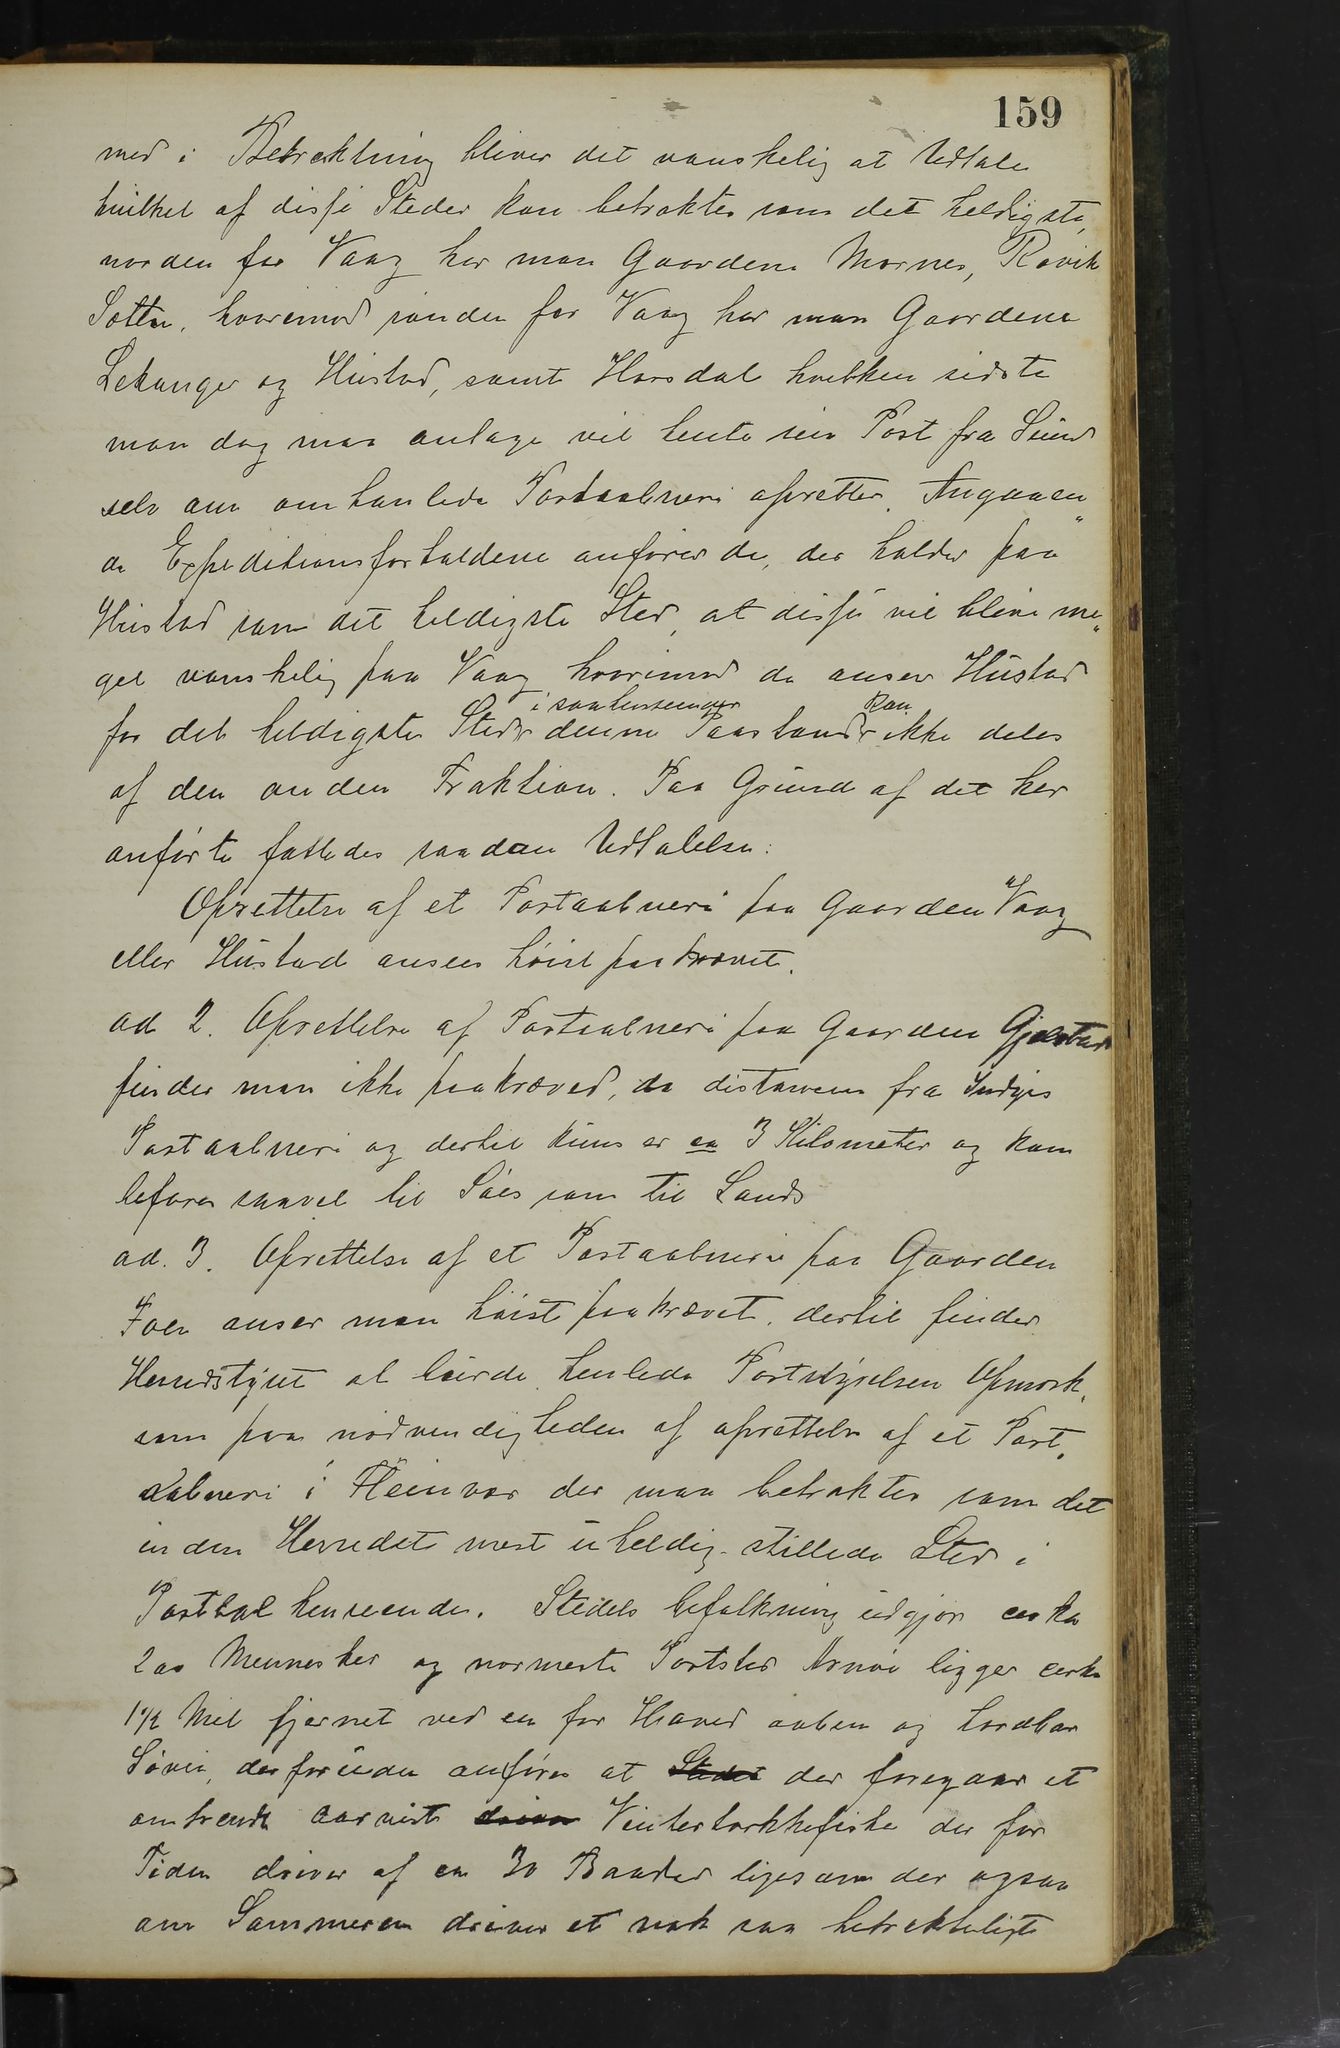 159
med i Betrektning bliver det vanskelig at Udtale
hvilket af disse Steder kan betraktes som det heldigste,
norden for Vaag har man Gaardene Mornes, Røvik
Sætter, hvorimod sønden for Vaag har man Gaardene
Lekanger og Hustad, samt Horsdal hvilken sidste
man dog maa antage vil hente sin Post fra Sund
selv om omhanlede Postaabneri oprettes. Angaaen„
de Expeditionsforholdene anfører de, der holder paa
Hustad som det heldigste Sted, at disse vil blive me„
get vanskelig paa Vaag hvorimod de anser Hustad
i saa henseender kan
for det heldigste Sted denne Paastand ikke deles
af den anden Fraktion. Paa Grund af det her
anførte fattedes saadan Udtalelse:
Oprettelse af et Postaabneri paa Gaarden Vaag
eller Hustad ansees høist paakrævet.
ad 2. Oprettelse af Postaabneri paa Gaarden Gjelstad
finder man ikke paakræved, da distancen fra Indyr
Postaabneri og dertil kuns er ca 3 Kilometer og kan
befares saavel til Søes som til Lands
ad. 3. Oprettelse af et Postaabneri paa Gaarden
anser man høist paakrævet. dertil finder
Herredstyret at burde henlede Poststyrelsen Opmerk„
som paa nødvendigheden af oprettelse af et Post„
aabneri i Fleinvær der maa betraktes som det
inden Herredets mest uheldig stillede Sted i
Postal henseende. Stedets befolkning udgjør cirka
200 Mennesker og nærmeste Poststed Arnøi ligger cirka
1 1/2 Mil fjernet ved en for Haved aaben og hordbar
Søvei, desforuden anføres at Stedet der foregaar et
omtrendt aarvist driver Vintertorskefiske der for
Tiden driver af ca 30 Baader ligesom der ogsaa
om Sommeren driver et nok saa betrekteligt